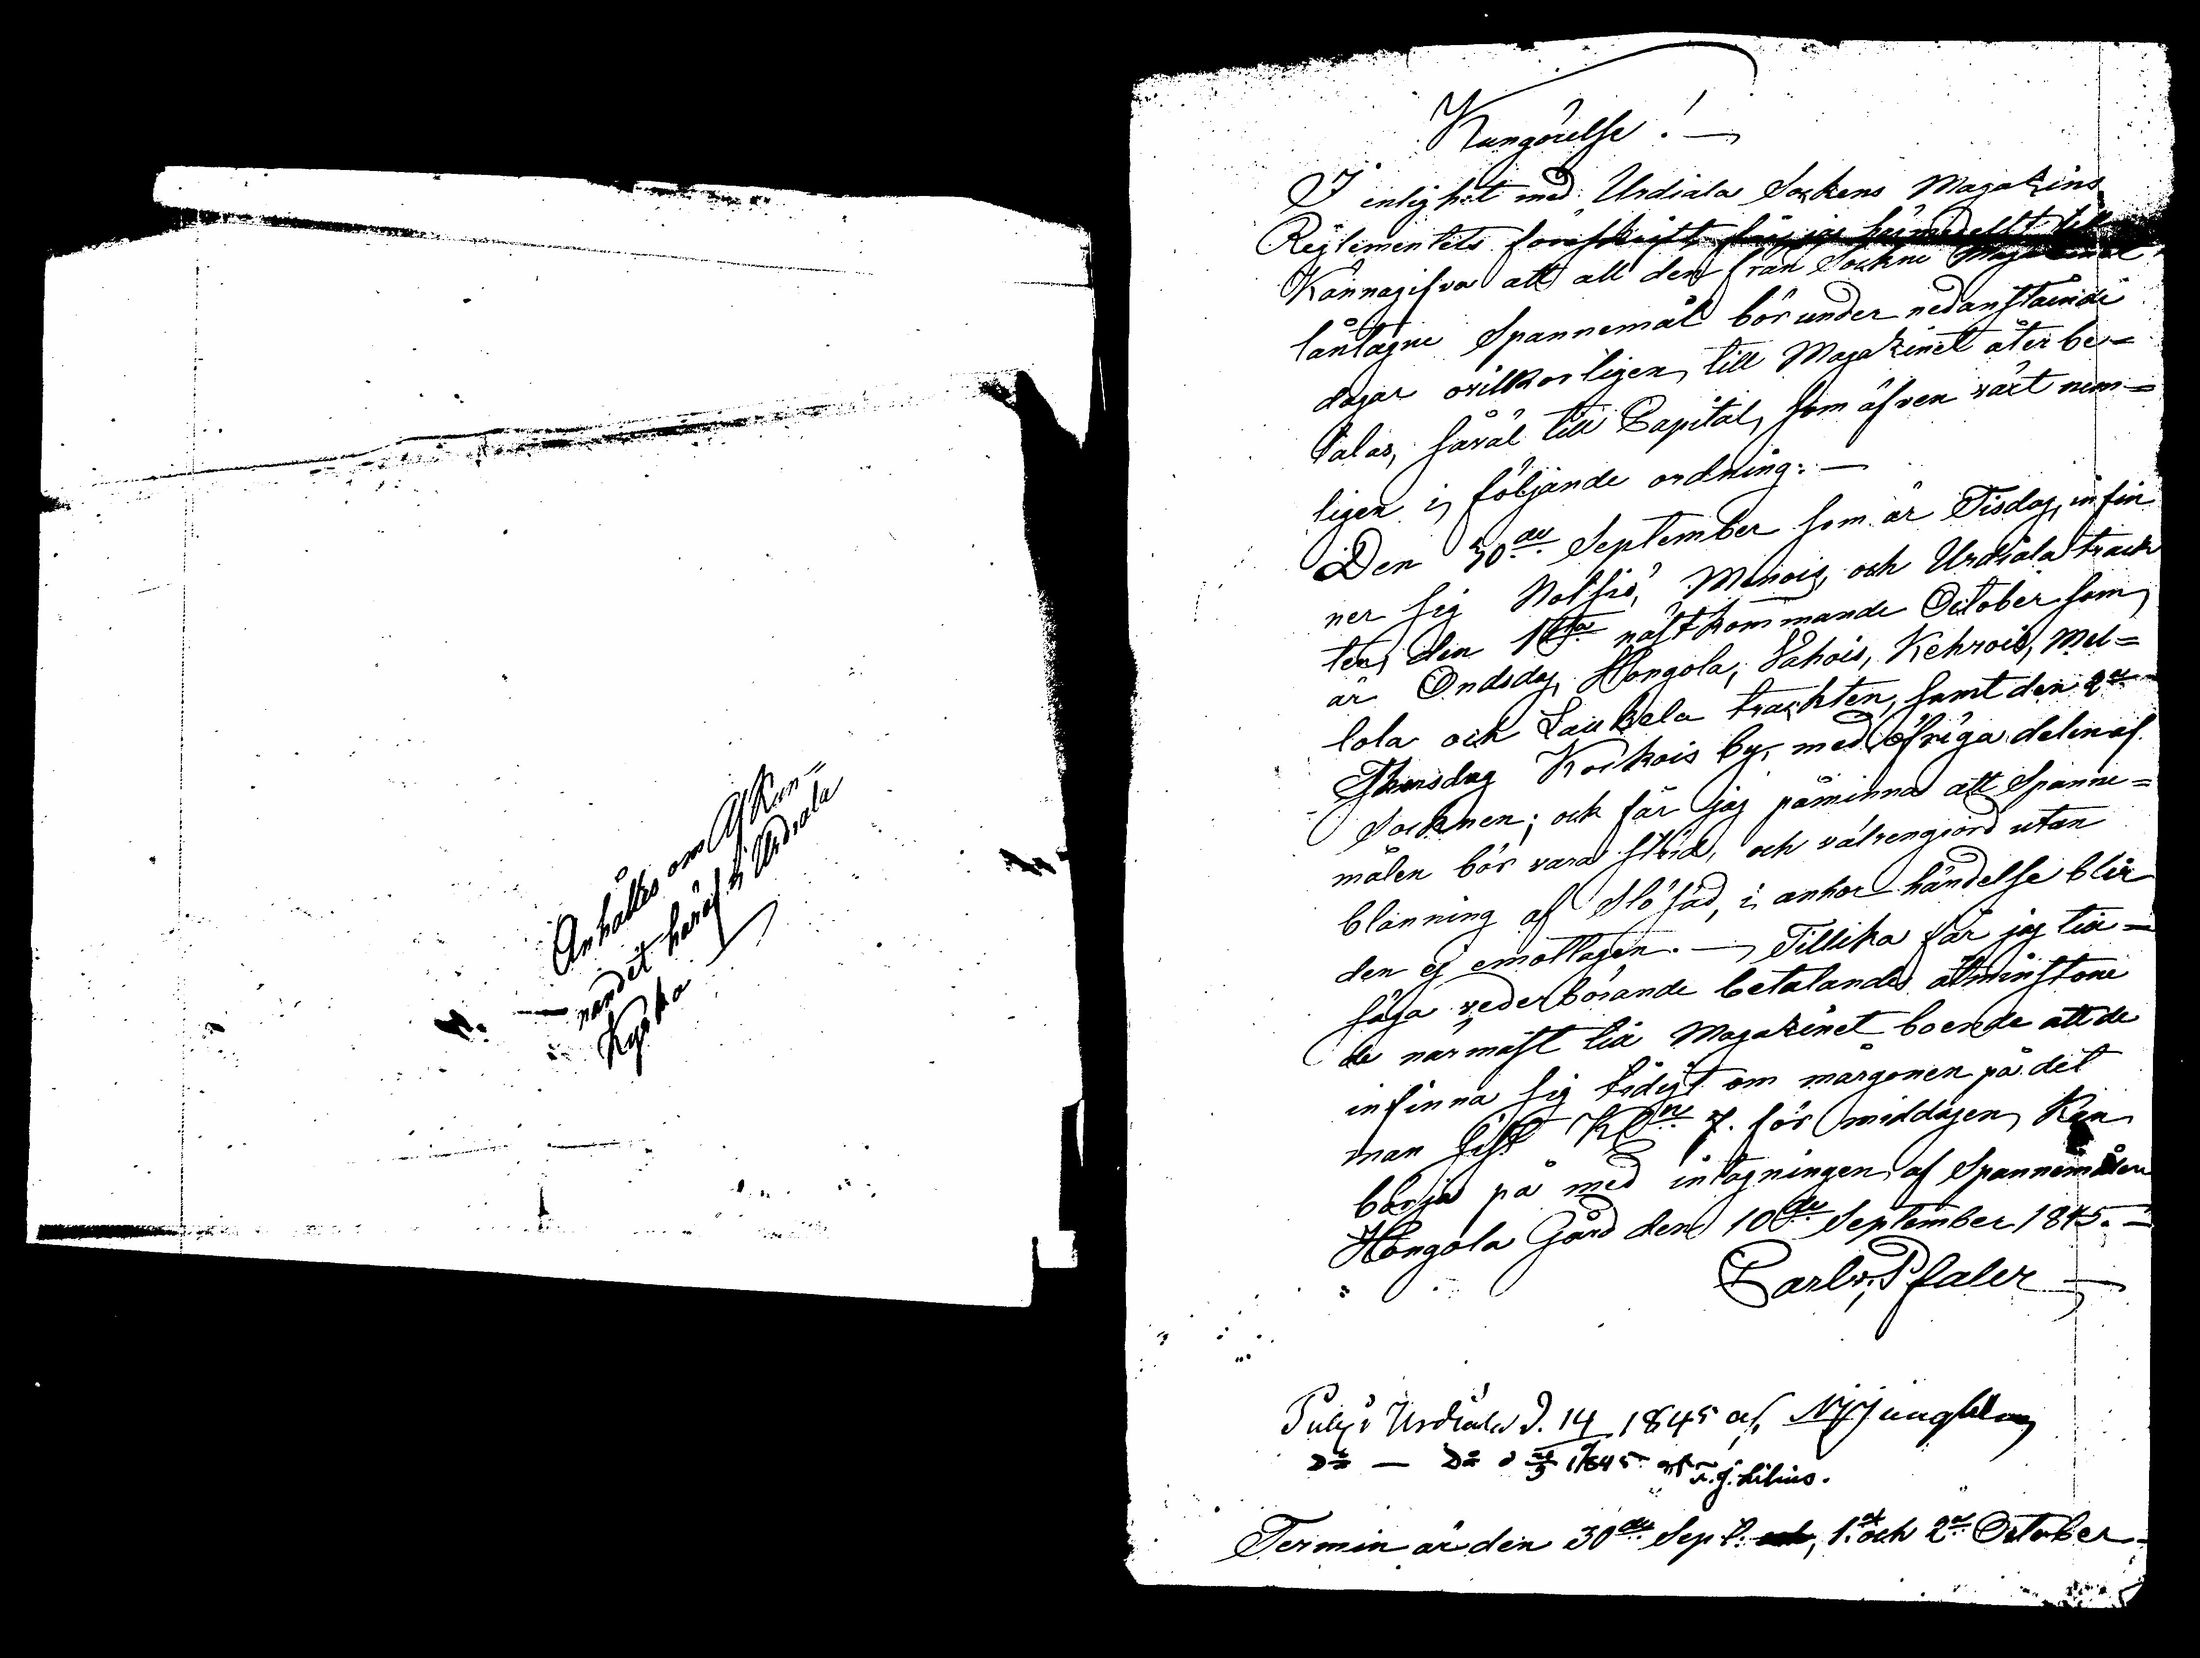 Anhålles om Afkun=
nandet häraf i Urdiala
Kyrka
Kungörelse! —
I enlighet med Urdiala Sockens Magazins
Reglementets föreskrift får jag härmedelst till
Kännagifva att all den från Sockne Magazinet
låntagne Spannemål bör under nedanstående
dagar ovilkorligen till Magazinet återbe=
talas, såväl till Capital, som äfven växt nem=
ligen i följande ordning: —
Den 30de September som är Tisdag, infin
ner sig Notsjö, Menois, och Urdiala track
ten, den 1sta nästkommande October som
är Ondsdag Hongola, Wahois, Kehrois, Mel=
lola och Laukela trackten, samt den 2a
Thorsdag Koskois by, med öfriga delen af
Socknen; och får jag påminna att Spanne=
målen bör vara ströd, och välrengjord utan
blanning af Slösäd, i anhor händelse blir
den ej emottagen. — Tillika får jag till=
säga vederbörande betalandes åtminstone
de närmast till Magazinet boende att de
infinna sig tidigt om morgonen på det
man sist Kl. 7. för middagen Kan
börja på med intagningen af Spannemålen
Hongola Gård den 10de September 1845. —
Carl v. Pfaler
Publ. i Urdiala d. 14 1845 af NJ Jungblom
Do — Do d 21/9 1845 af F.J. Lilius.
Termin är den 30de Sept., 1. och 2a October